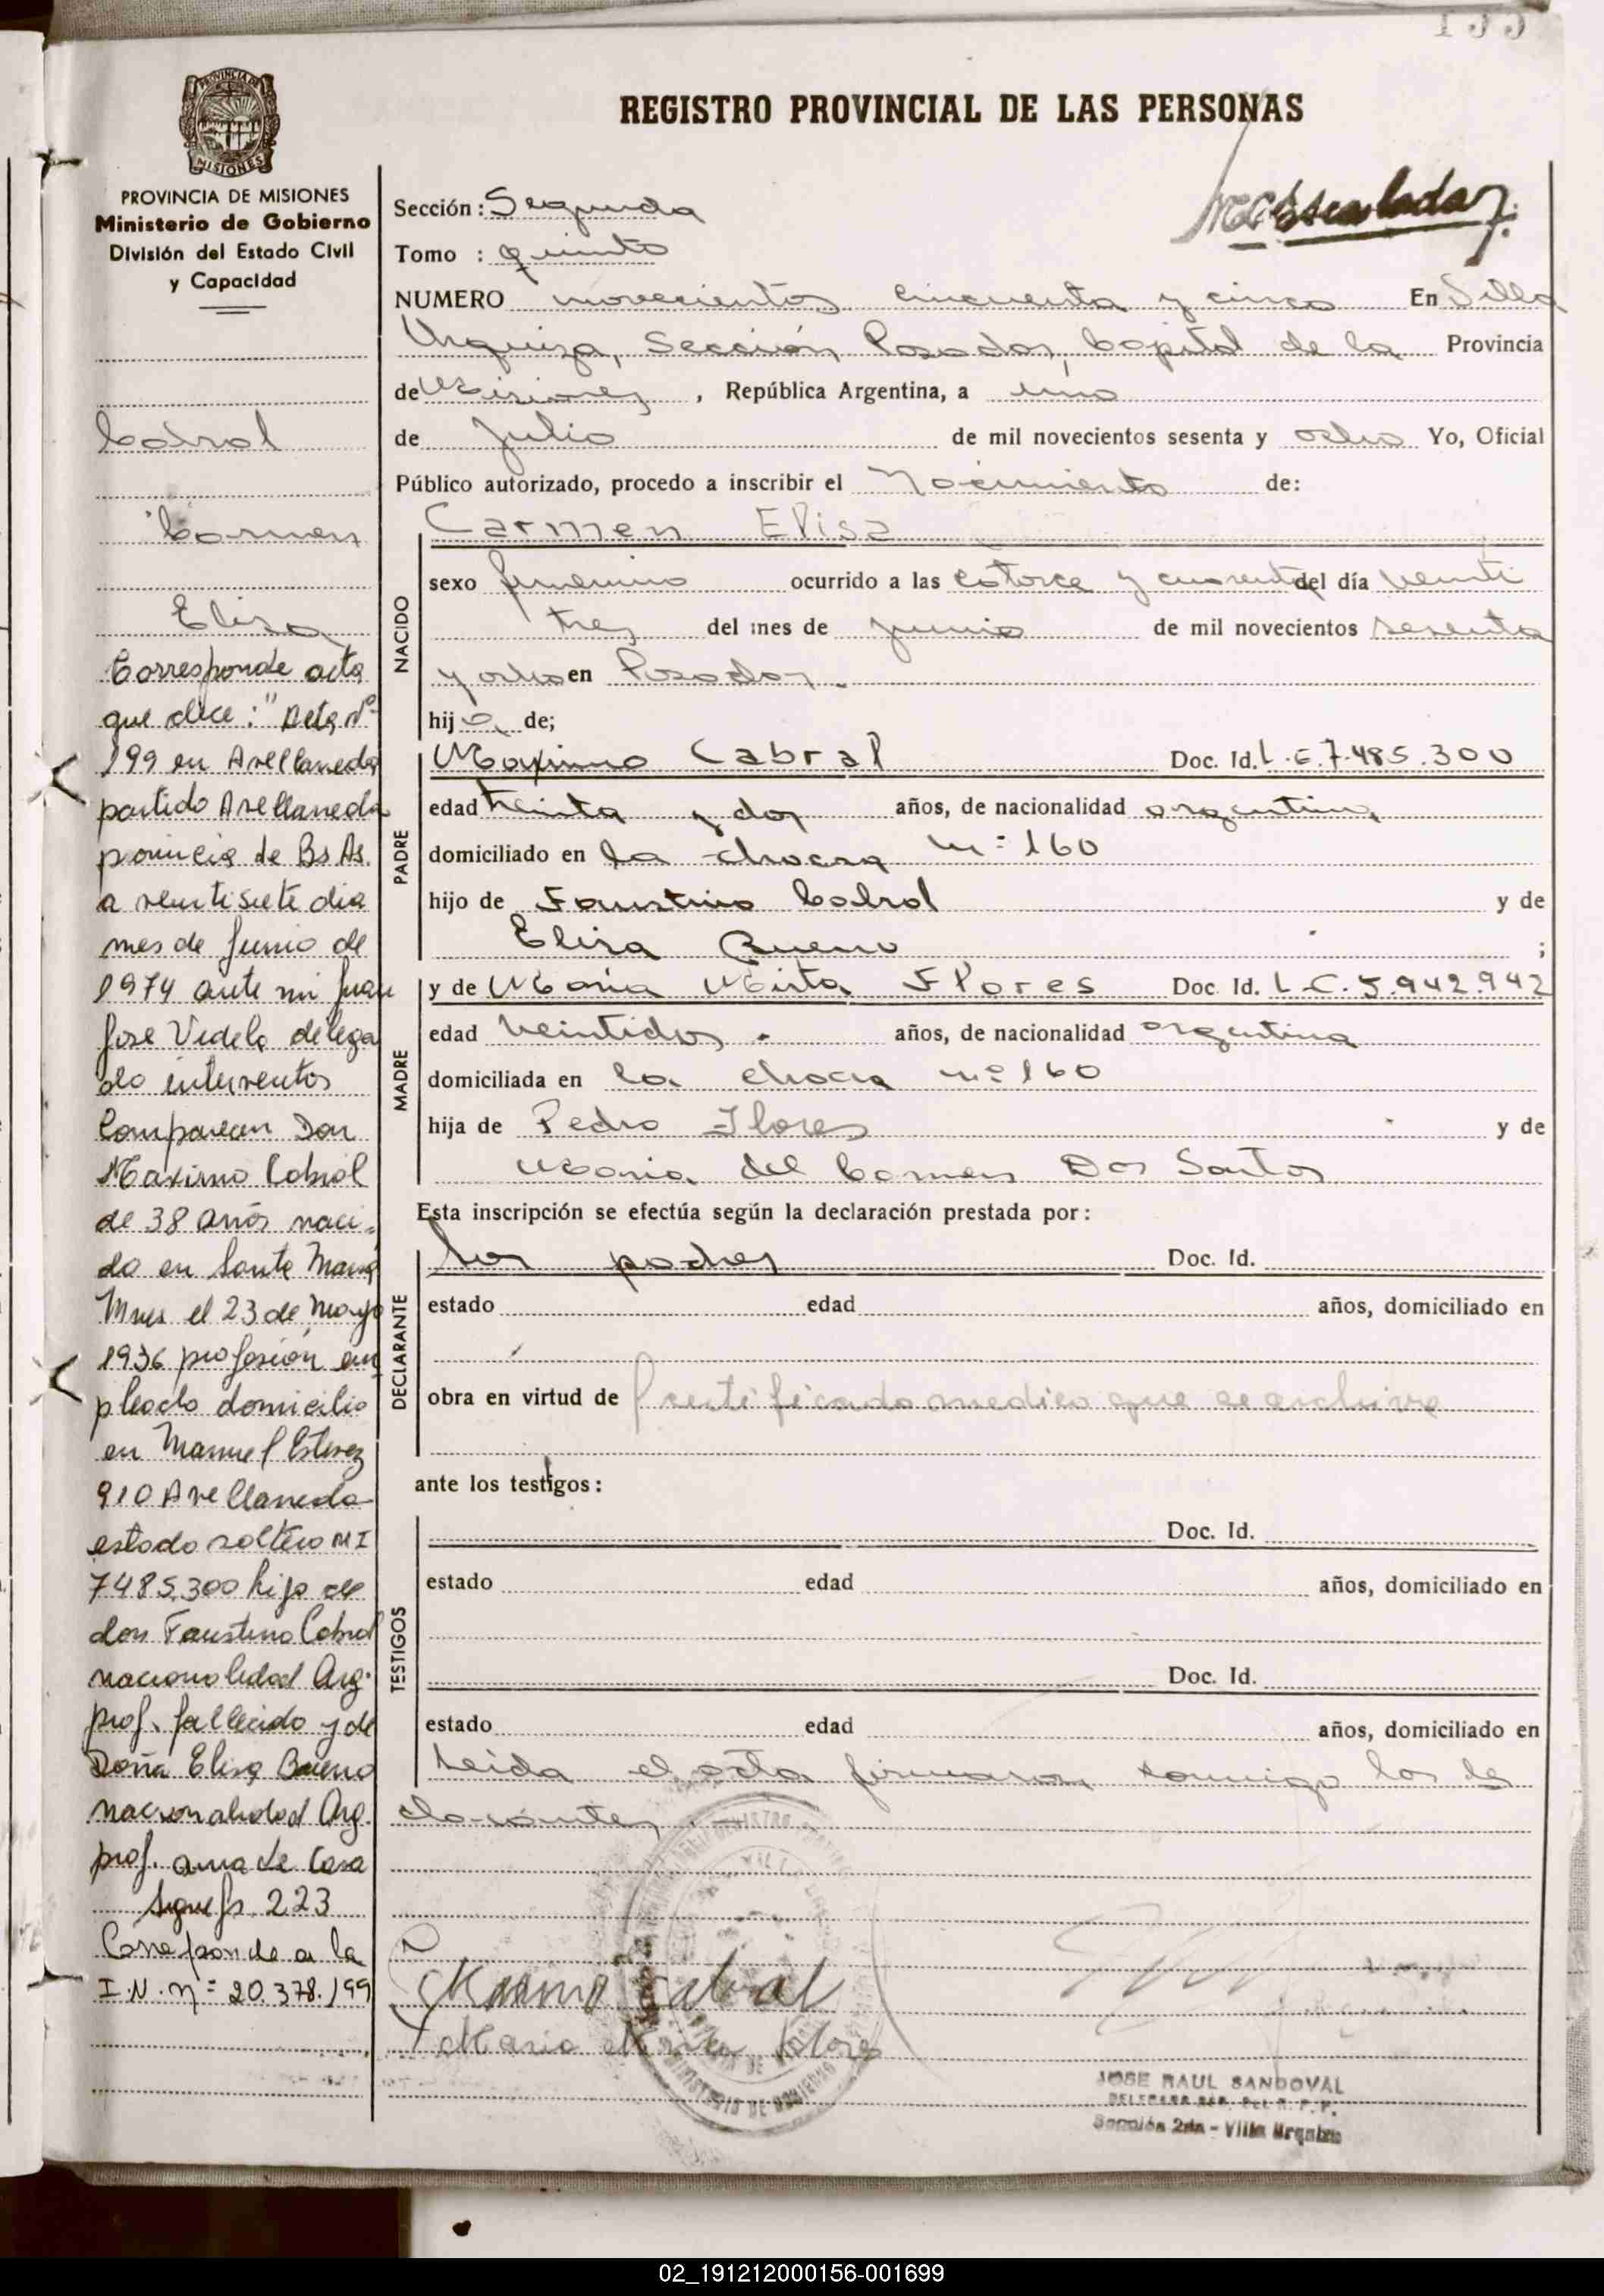 155
REGISTRO PROVINCIAL DE LAS PERSONAS
PROVINCIA DE MISIONES
MISIONES
PROVINCIA DE MISIONES
Ministerio de Gobierno
División del Estado Civil
y Capacidad
Cabral
Carmen
Elisa
Corresponde acta
que dice: "Acta Nº
199 en Avellaneda
partido Avellaneda
provincia de Bs As.
a veintisiete dia
mes de Junio de
1974 ante mi Juan
Jose Videla delega
do interventos
Comparecen Don
Maximo Cabral
de 38 años naci-
do en Santa Maria
Mnes el 23 de Mayo
1936 profesion em
pleado domicilio
en Manuel Estevez
910 Avellaneda
estado soltero M I
7485.300 hijo de
don Faustino Cabral
nacionalidad Arg.
prof. fallecido y de
Doña Elisa Bueno
nacionalidad Arg.
prof. ama de Casa
Sigue fs. 223
Corresponde a la
I.N. nº 20.378./99
Sección: Segunda
Escalada
Tomo : quinto
NUMERO novecientos cincuenta y cinco En Villa
Urquiza, Sección Posadas, Capital de la Provincia
de Misiones , República Argentina, a uno
de Julio de mil novecientos sesenta y ocho Yo, Oficial
Público autorizado, procedo a inscribir el Nacimiento de:
Carmen Elisa
NACIDO
sexo femenino ocurrido a las catorce y cuarenta del día veinti
tres del mes de junio de mil novecientos sesenta
y ocho en Posadas.
hija de;
PADRE
Maximo Cabral Doc. Id. L.E.7.485.300
edad treinta y dos años, de nacionalidad argentina
domiciliado en la chacra nº 160
hijo de Faustino Cabral y de
Elisa Bueno ;
MADRE
y de Maria Mirta Flores Doc. Id. L.C.5.942.942
edad veintidos años, de nacionalidad argentina
domiciliada en la chacra nº 160
hija de Pedro Flores y de
Maria del Carmen Dos Santos
Esta inscripción se efectúa según la declaración prestada por:
DECLARANTE
los padres Doc. Id.
estado edad años, domiciliado en
obra en virtud de certificado medico que se archiva
ante los testigos:
TESTIGOS
Doc. Id.
estado edad años, domiciliado en
Doc. Id.
estado edad años, domiciliado en
Leida el acta firmaron conmigo los de
clarantes
Maximo Cabral
Maria Mirta Flores
MINISTERIO DE GOBIERNO
JOSE RAUL SANDOVAL
Sección 2da - Villa Urquiza
02_191212000156-001699